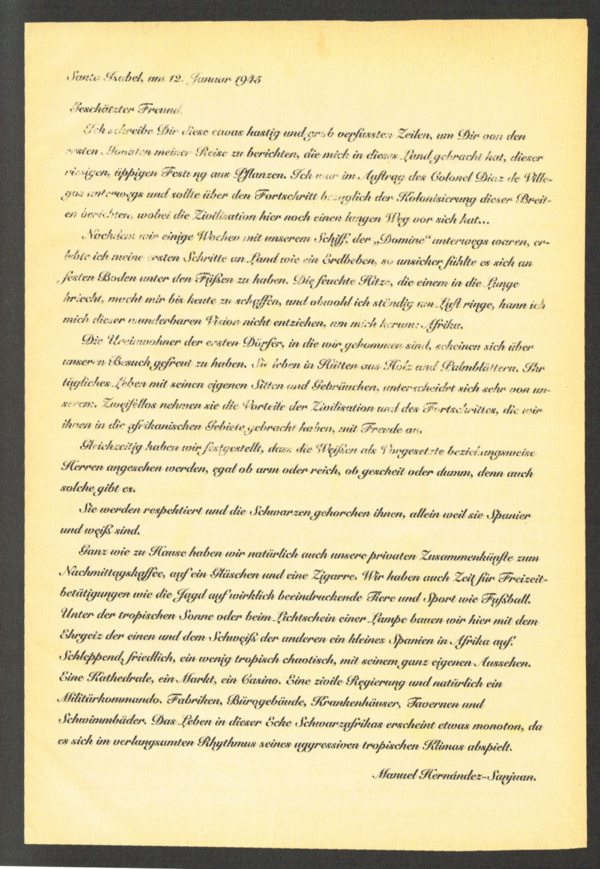 Santa Isabel, am 12. Januar 1945
Geschätzter Freund.
Ich schreibe Dir diese etwas hastig und grob verfassten Zeilen, um Dir von den
ersten Monaten meiner Reise zu berichten, die mich in dieses Land gebracht hat, dieser
riesigen, üppigen Festung aus Pflanzen. Ich war im Auftrag des Colonel Diaz de Ville-
gas unterwegs und sollte über den Fortschritt bezüglich der Kolonisierung dieser Breit-
en berichten, wobei die Zivilisation hier noch einen langen Weg vor sich hat...
Nachdem wir einige Wochen mit unserem Schiff, der „Domine“ unterwegs waren, er-
lebte ich meine ersten Schritte an Land wie ein Erdbeben, so unsicher fühlte es sich an
festen Boden unter den Füßen zu haben. Die feuchte Hitze, die einem in die Lunge
kriecht, macht mir bis heute zu schaffen, und obwohl ich ständig um Luft ringe, kann ich
mich dieser wunderbaren Vision nicht entziehen, um mich herum: Afrika.
Die Ureinwohner der ersten Dörfer, in die wir gekommen sind, scheinen sich über
unseren Besuch gefreut zu haben. Sie leben in Hütten aus Holz und Palmblättern. Ihr
tägliches Leben mit seinen eigenen Sitten und Gebräuchen, unterscheidet sich sehr von un-
serem. Zweifellos nehmen sie die Vorteile der Zivilisation und des Fortschrittes, die wir
ihnen in die afrikanischen Gebiete gebracht haben, mit Freude an.
Gleichzeitig haben wir festgestellt, dass die Weißen als Vorgesetzte beziehungsweise
Herren angesehen werden, egal ob arm oder reich, ob gescheit oder dumm, denn auch
solche gibt es.
Sie werden respektiert und die Schwarzen gehorchen ihnen, allein weil sie Spanier
und weiß sind.
Ganz wie zu Hause haben wir natürlich auch unsere privaten Zusammenkünfte zum
Nachmittagskaffee, auf ein Gläschen und eine Zigarre. Wir haben auch Zeit für Freizeit-
betätigungen wie die Jagd auf wirklich beeindruckende Tiere und Sport wie Fußball.
Unter der tropischen Sonne oder beim Lichtschein einer Lampe bauen wir hier mit dem
Ehrgeiz der einen und dem Schweiß der anderen ein kleines Spanien in Afrika auf.
Schleppend, friedlich, ein wenig tropisch chaotisch, mit seinem ganz eigenen Aussehen.
Eine Kathedrale, ein Markt, ein Casino. Eine zivile Regierung und natürlich ein
Militärkommando. Fabriken, Bürogebäude, Krankenhäuser, Tavernen und
Schwimmbäder. Das Leben in dieser Ecke Schwarzafrikas erscheint etwas monoton, da
es sich im verlangsamten Rhythmus seines aggressiven tropischen Klimas abspielt.
Manuel Hernández-Sanjuan.